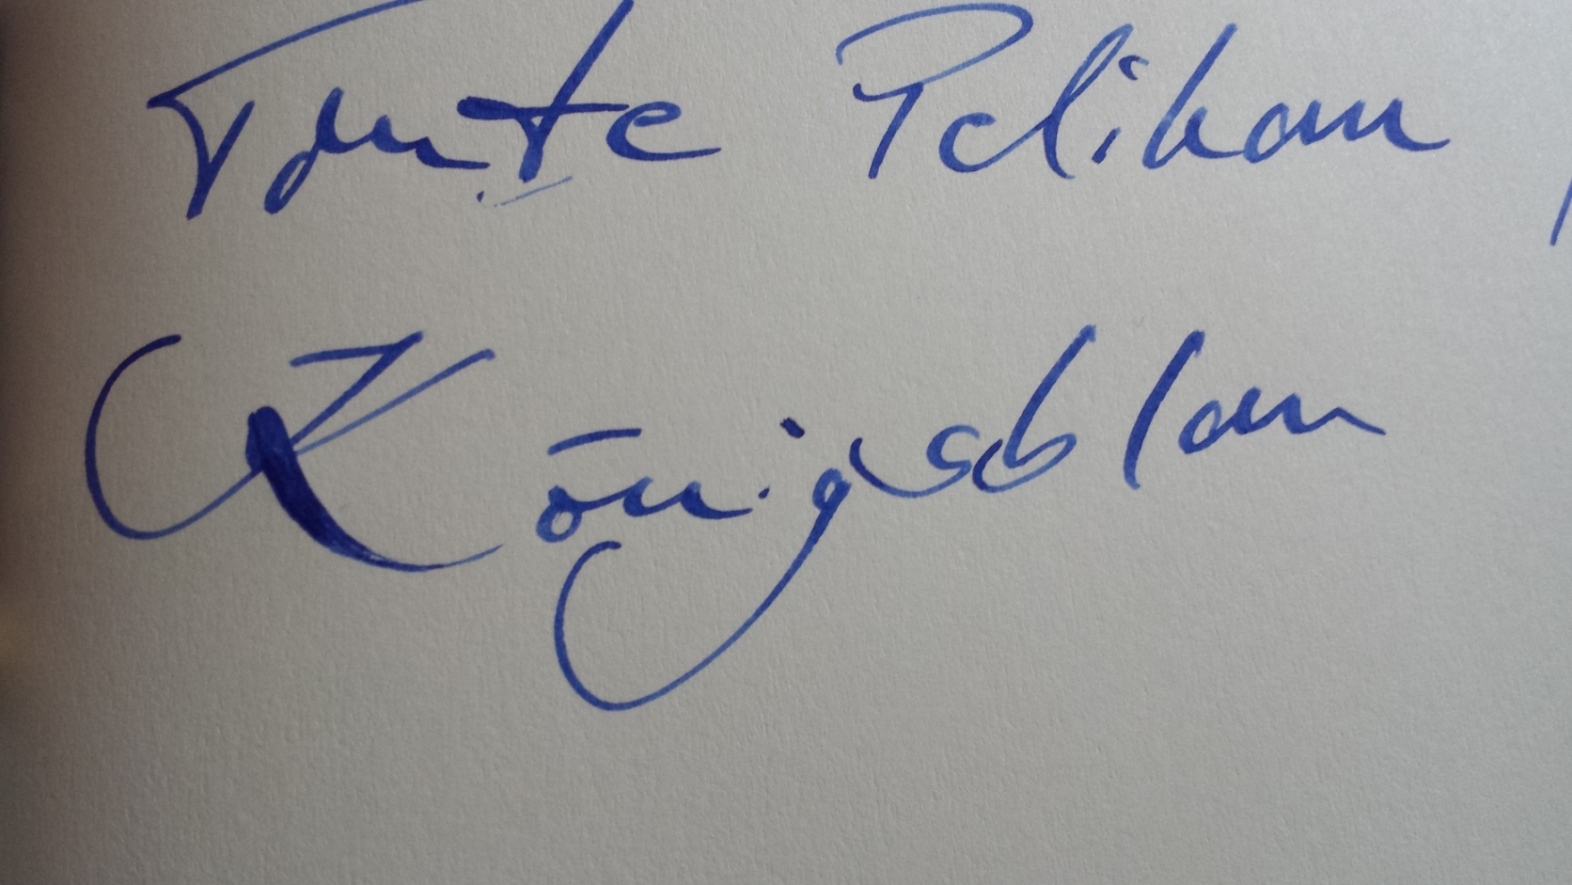 Tinte Pelikan
Königsblau